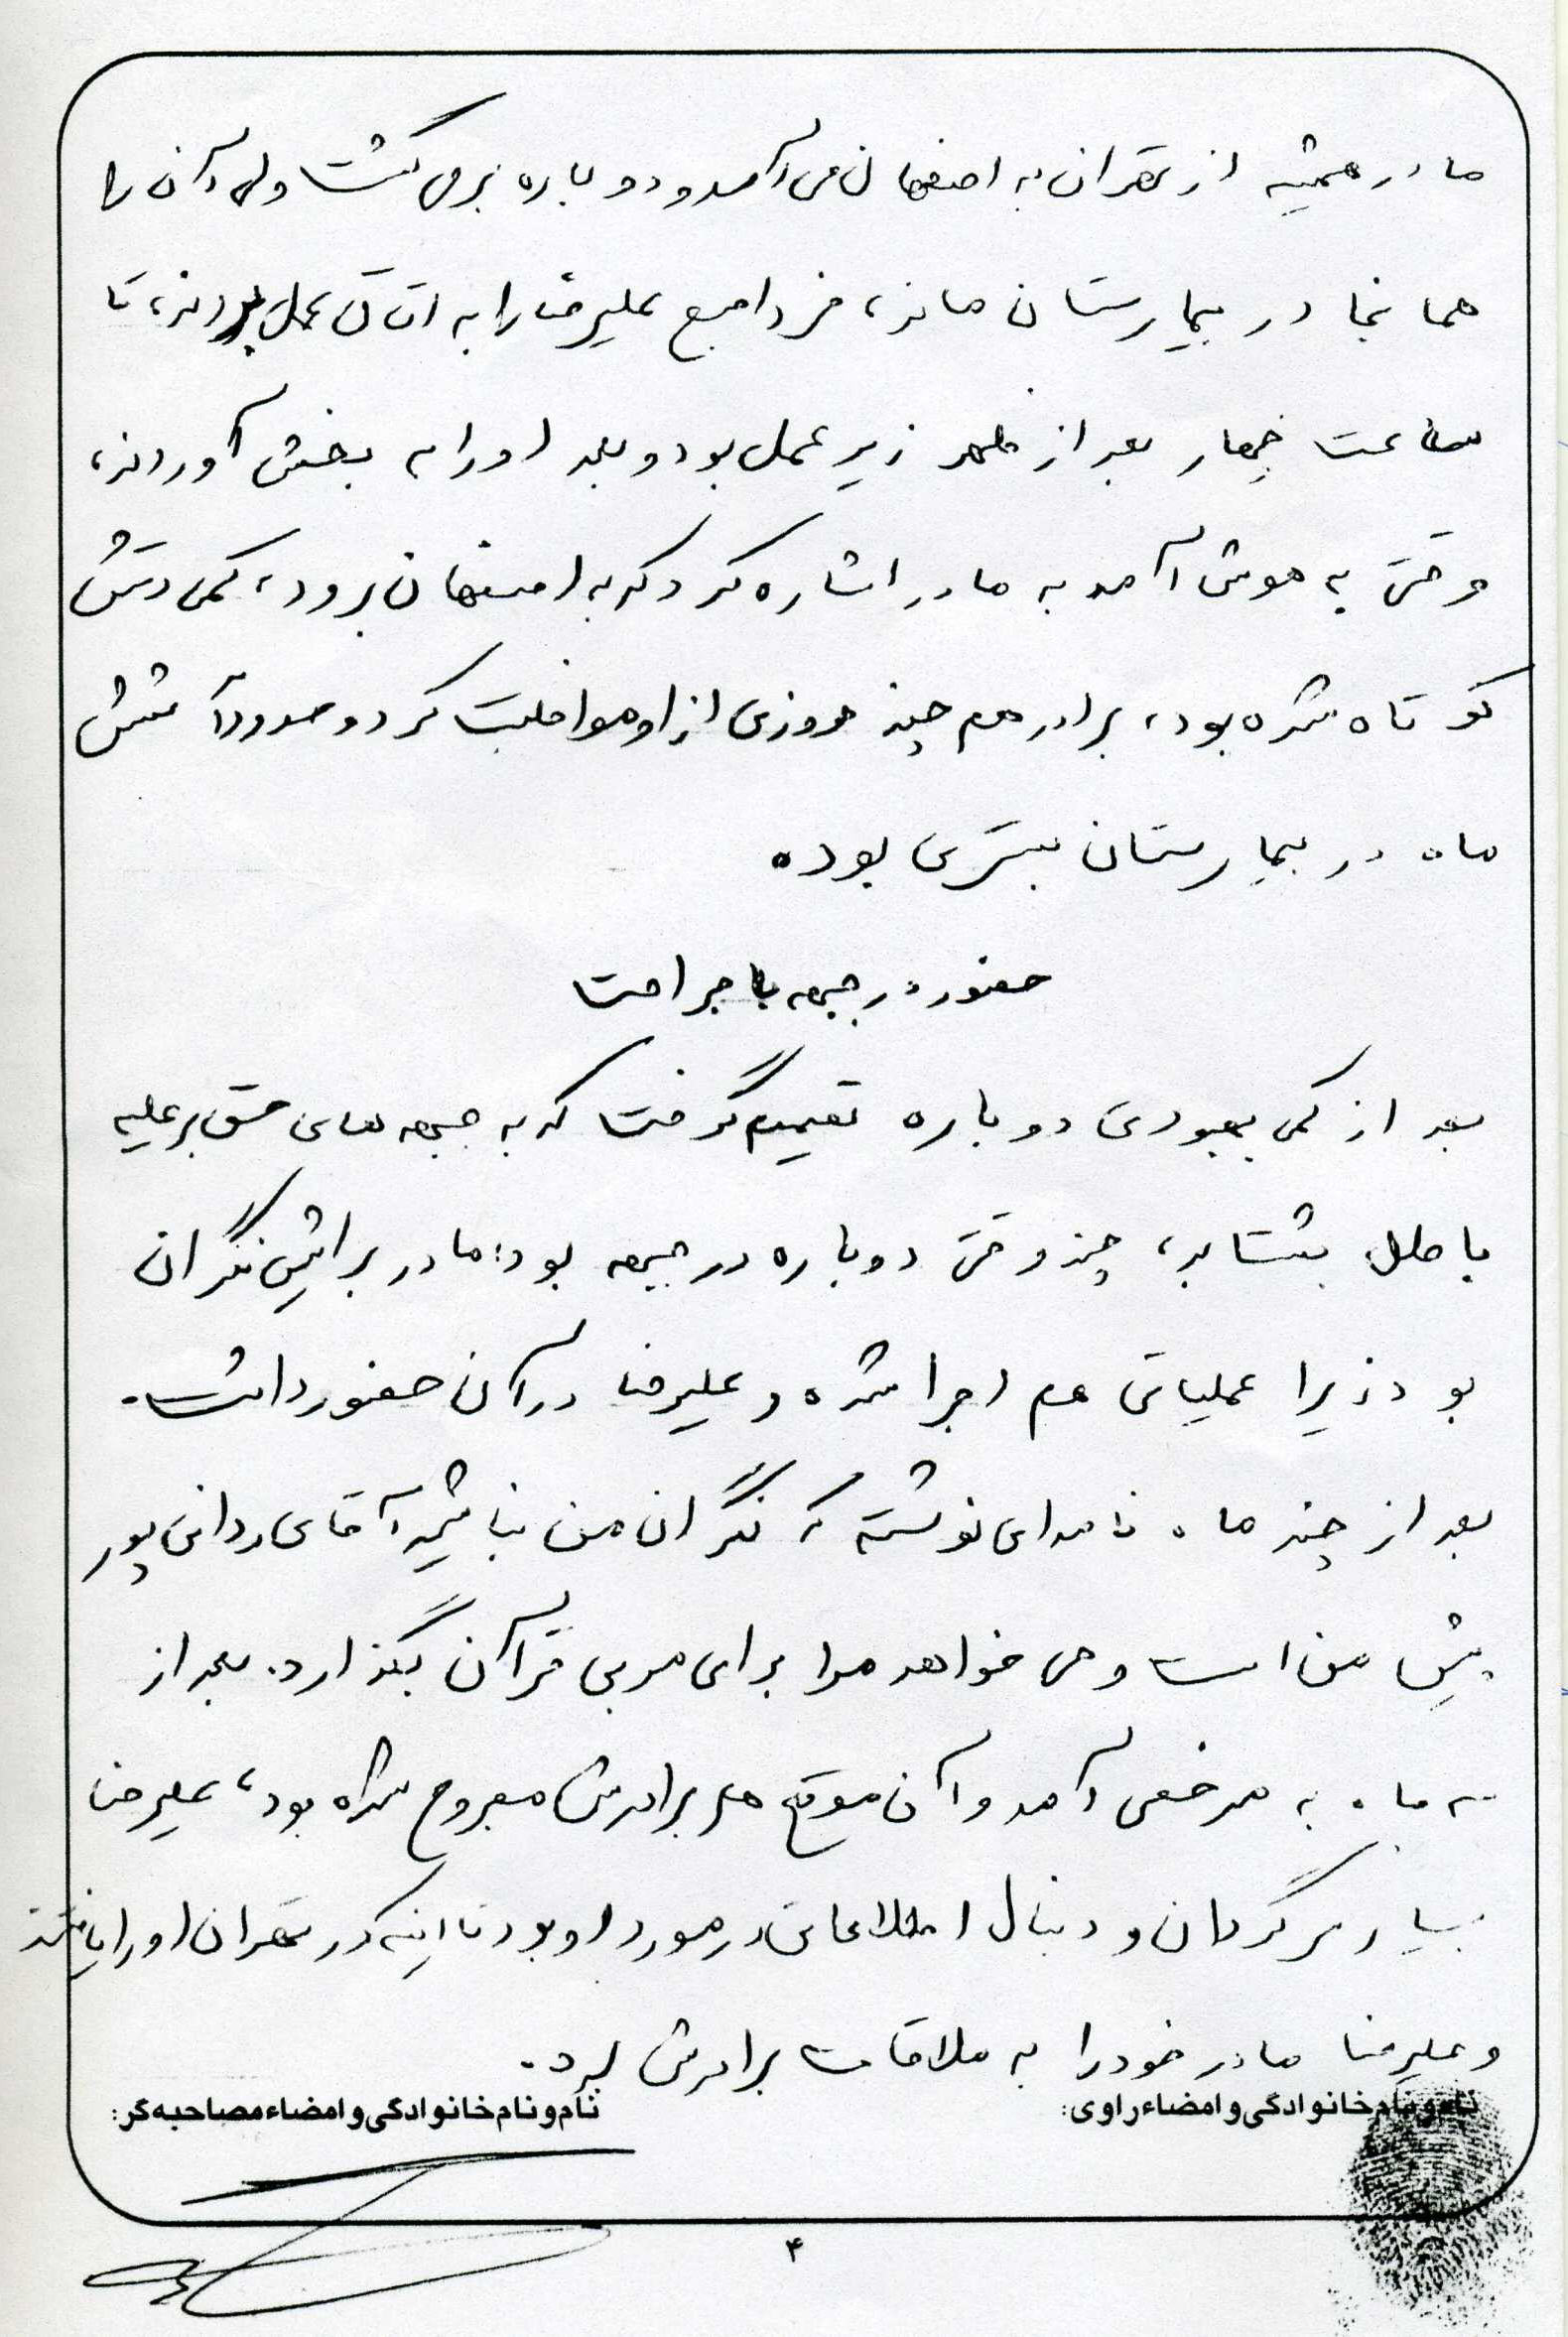 مادر همیشه از تهران به اصفهان می آمد و دوباره برمی گشت ولی آن را
همانجا در بیمارستان ماند، فردا صبح علیرضا را به اتاق عمل بردند، تا
ساعت چهار بعد از ظهر زیر عمل بود و بعد او را به بخش آوردند،
وقتی به هوش آمد به مادر اشاره کرد که به اصفهان برود، کمی دستش
کوتاه شده بود، برادر هم چند روزی از او مواظبت کرد و حدوداً شش
ماه در بیمارستان بستری بوده
حضور در جبهه با جراحت
بعد از کمی بهبودی دوباره تصمیم گرفت که به جبهه های حق بر علیه
باطل بشتابد، چند وقتی دوباره در جبهه بود؛ مادر برایش نگران
بود زیرا عملیاتی هم اجرا شده و علیرضا در آن حضور داشت.
بعد از چند ماه نامه ای نوشته که نگران من نباشید، آقای ردانی پور
پیش من است و می خواهد مرا برای مربی قرآن بگذارد. بعد از
سه ماه به مرخصی آمد و آن موقع هم برادرش مجروح شده بود، علیرضا
بسیار سرگردان و دنبال اطلاعاتی در مورد او بود تا اینکه در تهران او را یافتند
و علیرضا مادر خود را به ملاقات برادرش برد.
نام و نام خانوادگی و امضاء راوی: نام و نام خانوادگی و امضاء مصاحبه گر:
۴